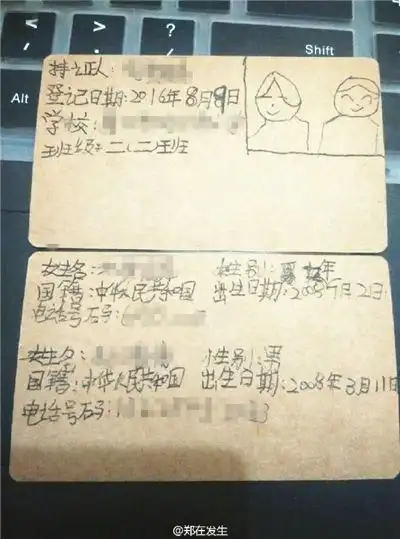 < ,
> .
? /
Shift
Alt
Ctrl
持证人:
登记日期:2016年8月9日
学校:
班级:二(二)班
姓名: 性别:
国籍:中华人民共和国 出生日期:2008年7月2日
电话号码:
姓名: 性别:男
国籍:中华人民共和国 出生日期:2008年3月11日
电话号码:1 3
@郑在发生